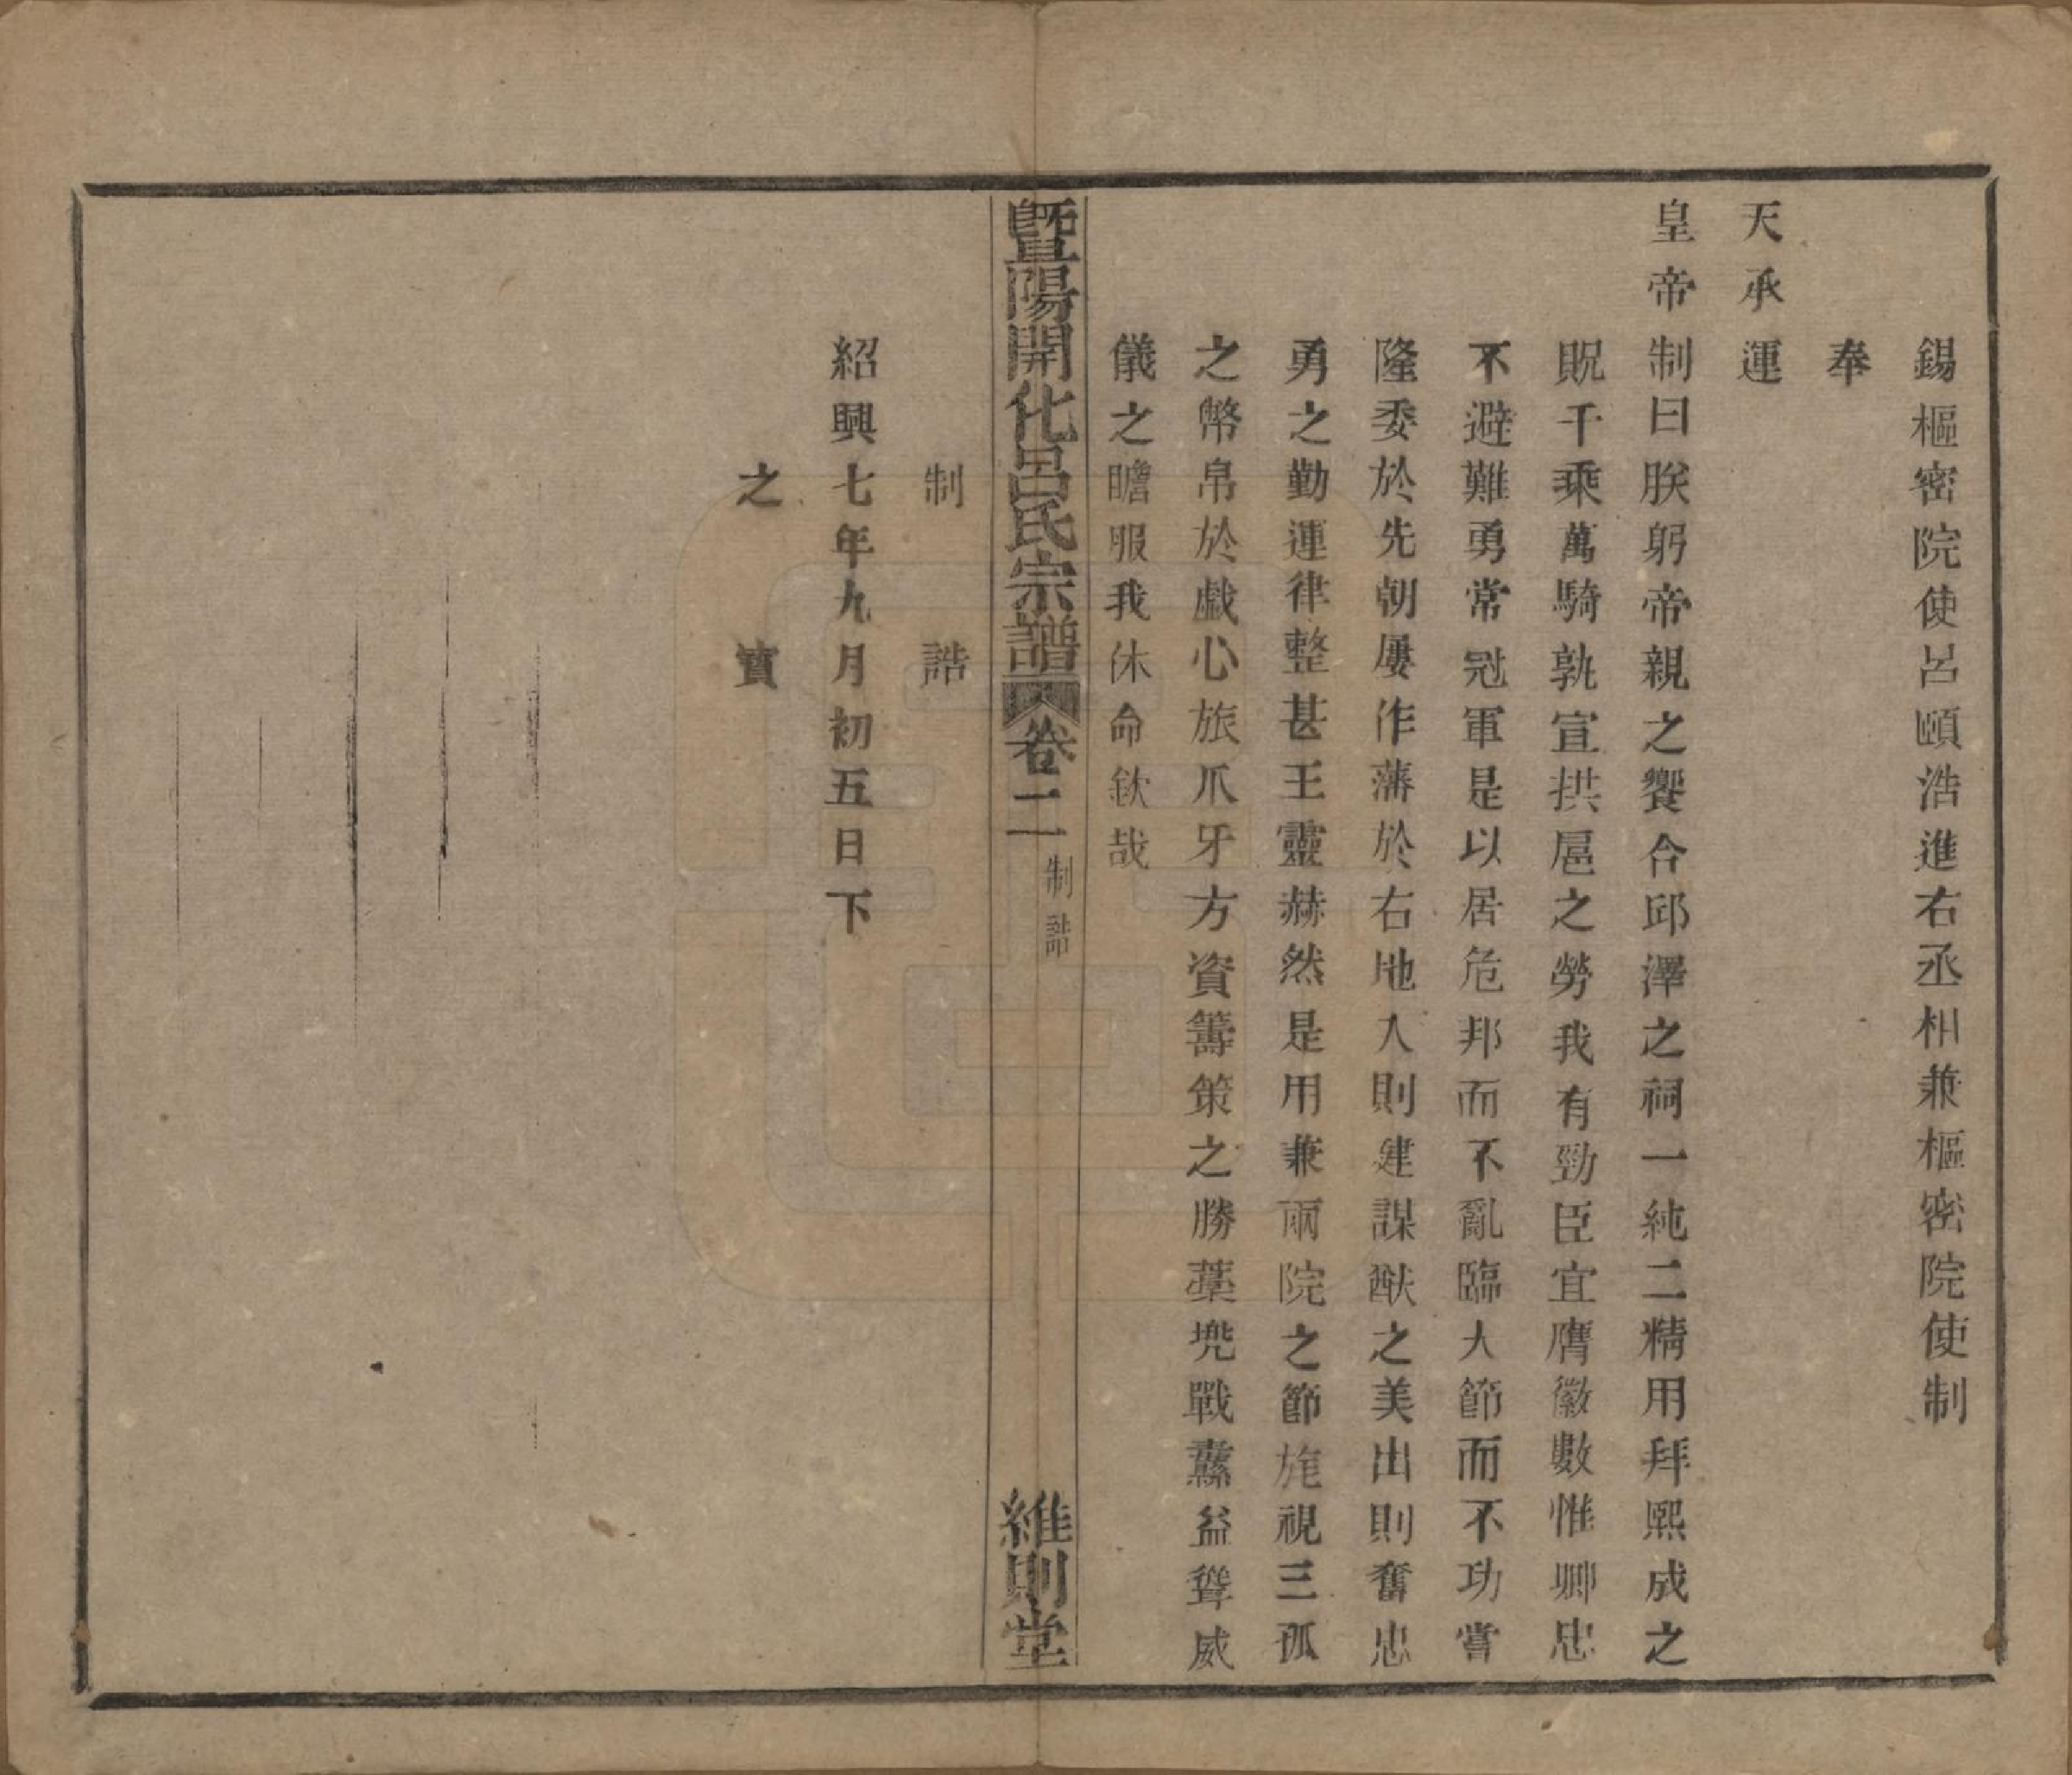 錫樞密院使呂頤浩進右丞相兼樞密院使制
奉
天承運
皇帝制曰朕躬帝親之饗合邱澤之祠一純二精用拜熙成之
貺千乘萬騎孰宣拱扈之勞我有勁臣宜膺徽數惟卿忠
不避難勇常冠軍是以居危邦而不亂臨大節而不功嘗
隆委於先朝屢作藩於右地入則建謀猷之美出則奮忠
勇之勤運律整甚王靈赫然是用兼兩院之節旄視三孤
之幣帛於戲心旅爪牙方資籌策之勝櫜兜戰纛益聳威
儀之瞻服我休命欽哉
暨陽開化呂氏宗譜 卷二 制誥 維則堂
制誥
紹興七年九月初五日下
之寶